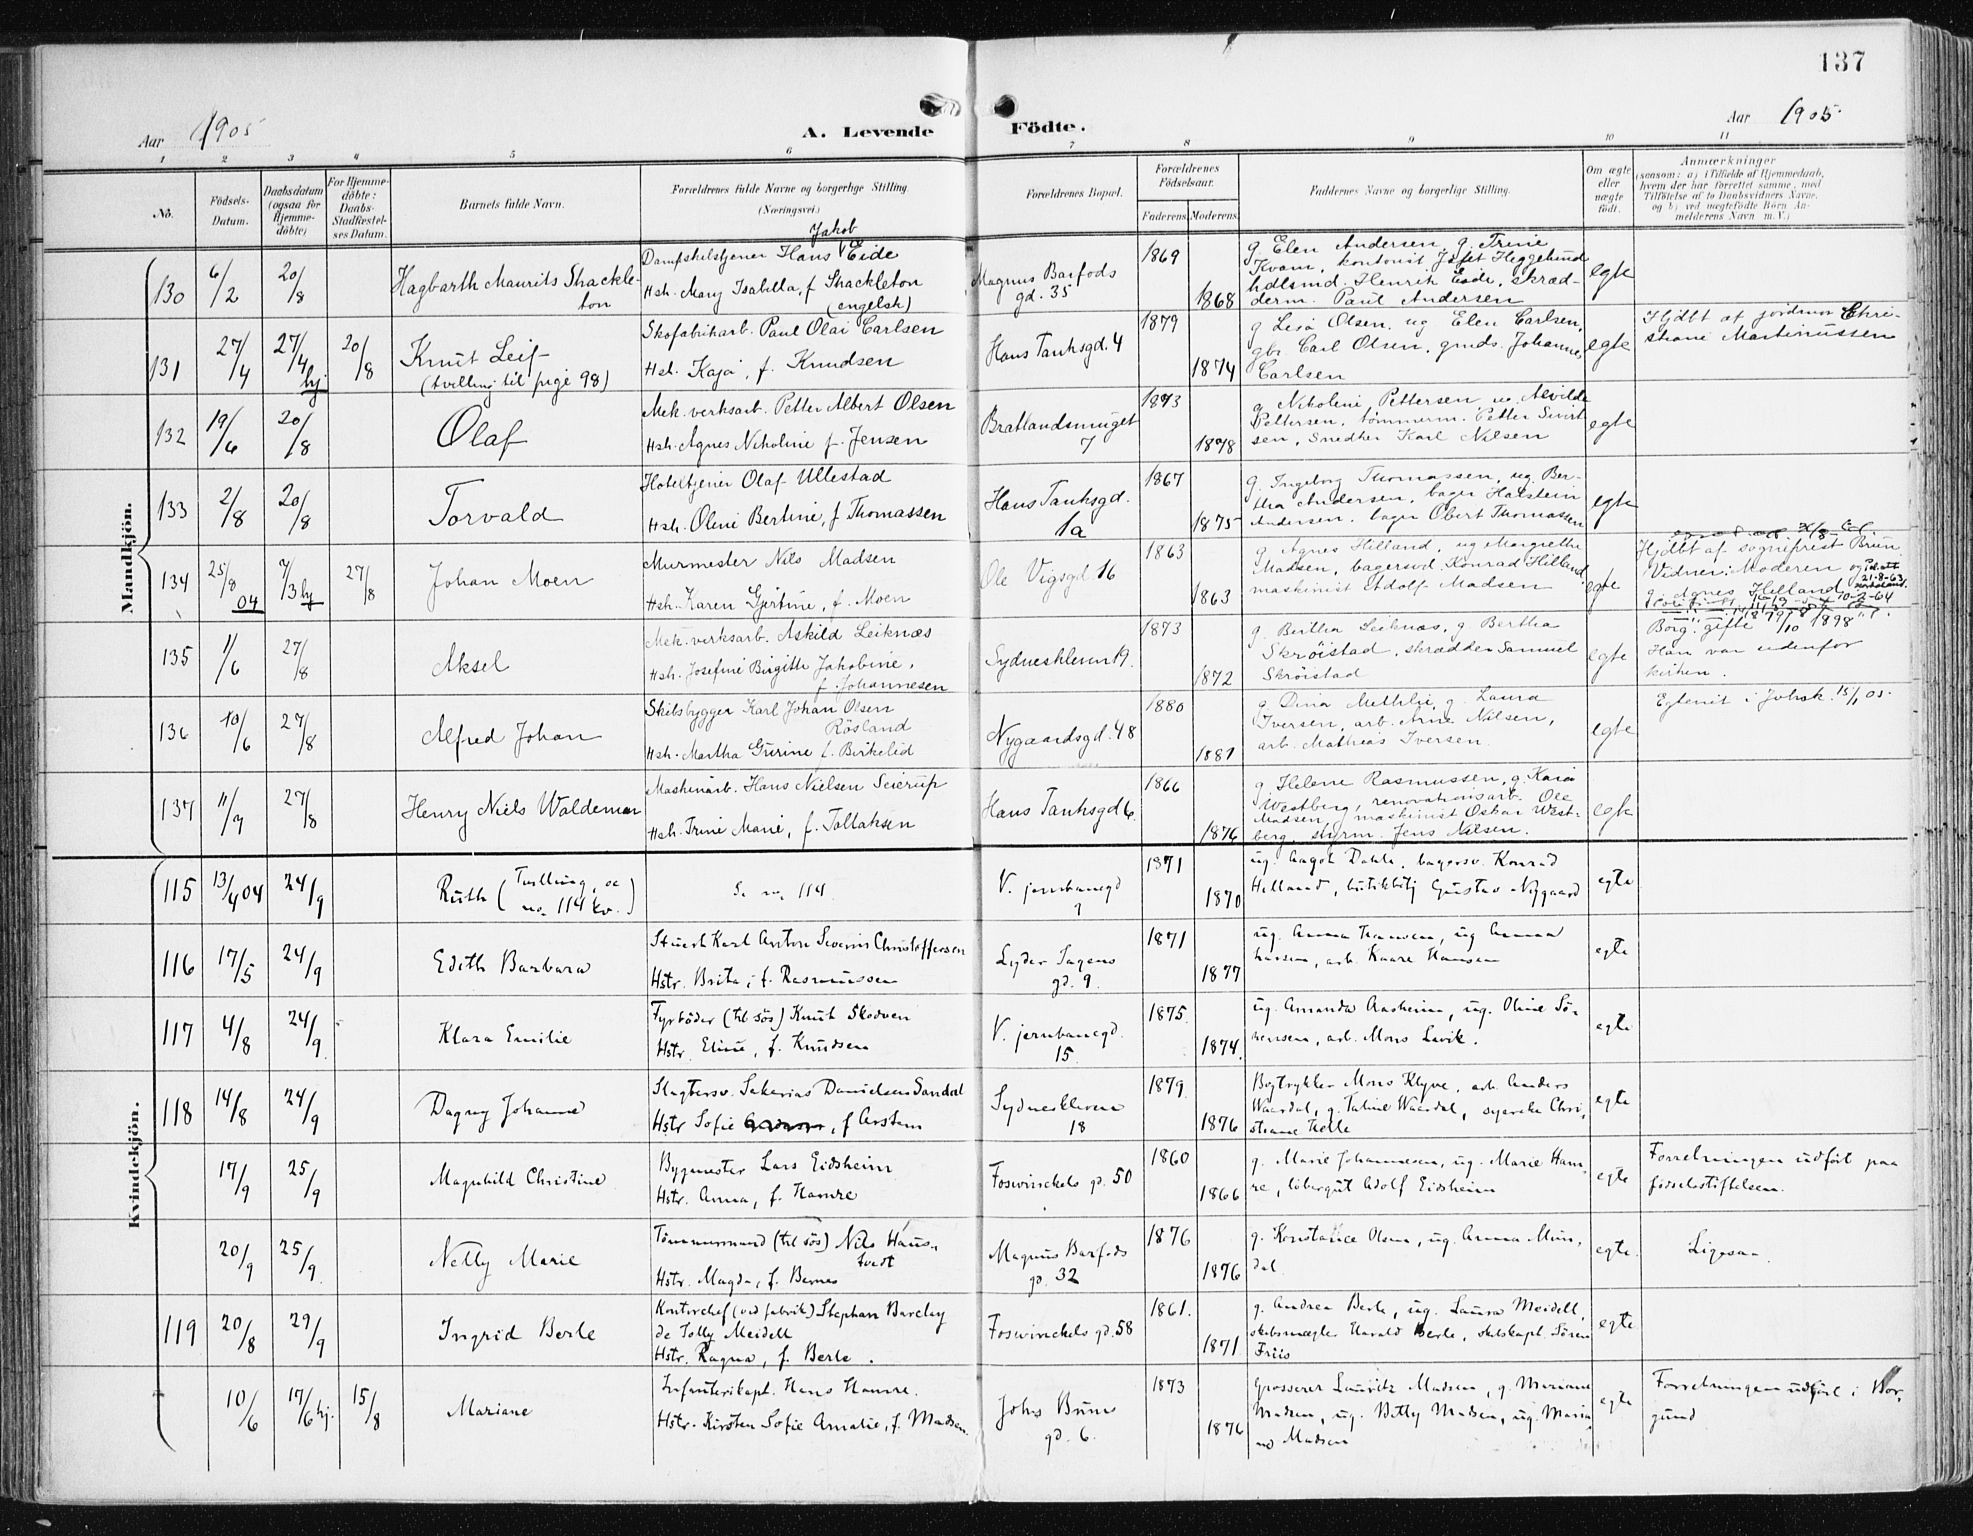 137
Aar 1905
A. Levende Födte.
Aar 1905.
1 2 3 4 5 6 7 8 9 10 11
No.
Födsels-
Datum.
Daabsdatum
(ogsaa for
Hjemme-
döbte)
For Hjemme-
döbte:
Daabs-
Stadfæstel-
ses Datum.
Barnets fulde Navn.
Forældrenes fulde Navne og borgerlige Stilling.
(Næringsvei.)
Forældrenes Bopæl.
Forældrenes
Födselsaar.
Faderens
Moderens
Faddernes Navne og borgerlig Stilling.
Om ægte
eller
uægte
födt.
Anmærkninger
(saasom: a) i Tilfælde af Hjemmedaab,
hvem der har forrettet samme, med
Tilföielse af to Daabsvidners Navne.
og b) ved uægtefödte Börn An-
melderens Navn m. V.)
Mandkjön.
130
6/2
20/8
Hagbarth Maurits Shackle-
ton
Jakob
Dampskibstjener Hans Eide
Hstr. Mary Isabella, f. Shackleton
(engelsk)
Magnus Barfods
gd. 35
1869
1868
g. Elen Andersen, g. Trine
Kvam, kontorist Heggelund
hdlsmd. Henrik Eide, skræd-
derm. Paul Andersen
egte
131
27/4
27/4 hj
20/8
Knut Leif
(tvilling til pige 98)
Skofabrikarb. Paul Olai Carlsen
Hstr. Kaja, f. Knudsen
Hans Tanksgd. 4
1879
1874
g. Olsen, ug Elen Carlsen,
gbr. Carl Olsen, Johanne
Carlsen
egte
Hjdbt af jordmor Chri-
stiane Martinussen
132
19/6
20/8
Olaf
Mek. verksarb. Petter Albert Olsen
Hstr. Agnes Nikoline f. Jensen
Bratlandsmuget
7
1873
1878
g Nikoline Pettersen ug. Alvilde
Pettersen, tömmerm. Petter
sen, Karl Nilsen
egte
133
2/8
20/8
Torvald
Hoteltjener Olaf Ullestad
Hstr. Oline Bertine, f Thomassen
Hans Tanksgd.
1a
1867
1875
g. Ingeborg Thomassen, ug. Ber-
tha Andersen, bager Halstein
Andersen, bager Obert Thomassen
egte
134
25/8 04
7/3 hj
27/8
Johan Moen
Murmester Nils Madsen
Hstr. Karen Gjertine, f. Moen
Ole Vigsgd 16
1863
1863
g. Agnes Hilland, ug Margrethe
Madsen, bagersvd Konrad Hilland
maskinist Adolf Madsen
egte
Hjdbt af sogneprest Brun
Vidner: Moderen og
g. Agnes Hilland
21-8-63
10-2-64
135
1/6
27/8
Aksel
Mek. verksarb. Askild Leiknæs
Hstr. Josefine Birgitte Jakobine,
f. Johannesen
Sydneskleven 19.
1873
1872
g. Bertha Leiknæs, g Bertha
Skröistad, skrædder Samuel
Skröistad
egte
Borg. gifte 7/10 1898
Han var udenfor
kirken.
136
10/6
27/8
Alfred Johan
Skibsbygger Karl Johan Olsen
Rösland
Hstr. Martha Gurine f. Birkelid
Nygaardsgd. 48
1880
1881
g Dina Methlie, g. Laura
Iversen, arb. Arne Nilsen,
arb. Mathias Iversen
egte
Egteviet i Johsk. 15/1 05.
137
11/7
27/8
Henry Niels Waldemar
Maskinarb. Hans Nielsen Seierup
Hstr. Trine Marie, f. Tollaksen
Hans Tanksgd 6.
1866
1876
g Helene Rasmussen, g. Kaia
Westberg, renovationsarb. Ole
Madsen, maskinist Oskar West-
berg, styrm. Jens Nilsen.
egte
Kvindekjön.
115
13/4 04
24/9
Ruth (Tvilling, se
no. 114 kv.)
Se no. 114
V. jernbanegd
7
1871
1870
ug. Aagot Dahle, bagersv. Konrad
Helland, butikbtj Gustav Nygaard
egte
116
17/5
24/9
Edith Barbara
Stuert Karl Anton Severin Christoffersen
Hstr. Brita, f. Rasmussen
Lyder Sagens
gd. 9.
1871
1877
ug. Anna Hansen, ug Anna
, arb. Kaare Hansen
egte
117
4/8
24/9
Klara Emilie
Fyrböder (til sös) Knut Skodven
Hstr. Eline, f. Knudsen
V. jernbanegd.
15.
1875.
1874.
ug. Amanda Aasheim, ug. Oline Sö-
rensen, arb. Mons Lavik.
egte
118
14/8
24/9
Dagny Johanne
Slagtersv. Sakarias Danielsen Sandal
Hstr Sofie , f Arstun
Sydneskleven
18
1879.
1876
Bogtrykker Mons Klyve, arb. Anders
Waardal, g. Taline Waardal, syerske Chri-
stiane Helle
egte
17/9
25/9
Magnhild Christine
Bygmester Lars Eidsheim
Hstr. Anna, f. Hamre
Foswinckels gd. 50
1860
1866
g. Marie Johannesen, ug. Marie Ham-
re, löbergut Adolf Eidsheim
egte
Forretningen udfört paa
födselsstiftelsen.
20/9
25/9
Nelly Marie
Tömmermand (til sös) Nils Haus-
tvedt
Hstr. Magda, f. Bernes
Magnus Barfods
gd. 32
1876
1876
g. Konstance Olsen, ug. Anna Mun-
dal.
egte.
Ligesaa
119
20/8
29/9
Ingrid Berle
Kontorchef (ved fabrik) Stephan Barclay
de Tolly Meidell
Hstr. Ragna, f. Berle.
Foswinckels gd. 58
1861.
1871
g. Andrea Berle, ug. Laura Meidell,
skibsmægler Harald Berle, skibskapt. Sören
Friis
egte
10/6
17/6 hj.
15/8
Mariane
Infanterikapt. Hans Hamre.
Hstr. Kirsten Sofie Amalie, f. Madsen.
Johs Bruns
gd. 6.
1873
1876
Grosserer Lauritz Madsen, g. Mariane
Madsen, ug. Betty Madsen, ug. Maria
Madsen
egte
Forretningen udfört i Bor-
gund